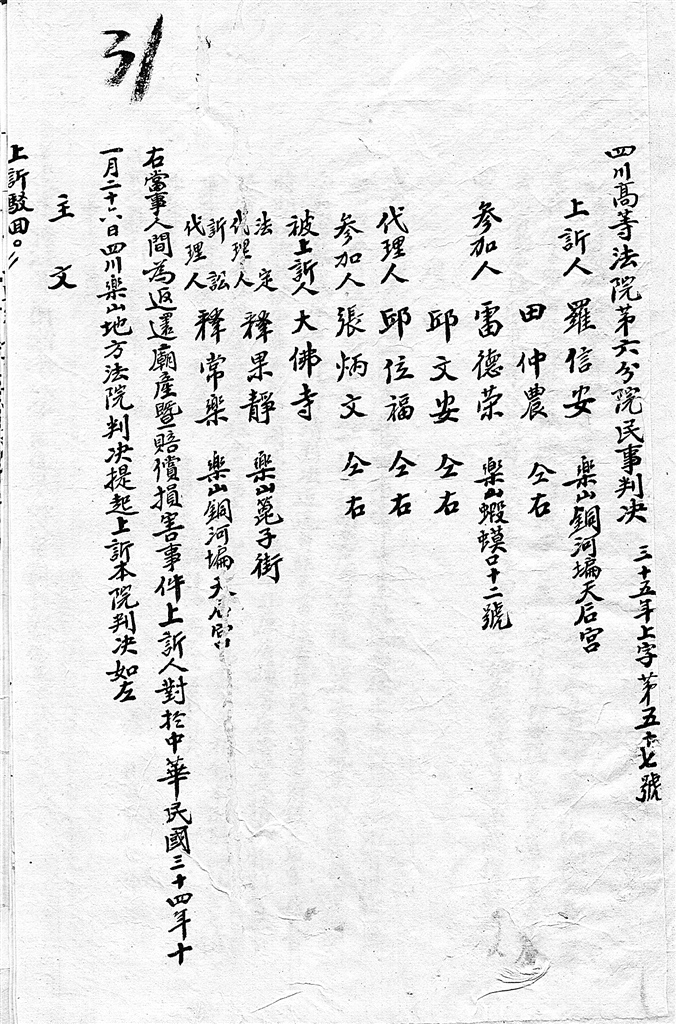 31
四川高等法院第六分院民事判决 三十五年上字第五十七號
上訴人 羅信安 樂山銅河堨天后宮
田仲農 仝右
參加人 雷德荣 樂山蝦蟆口十二號
邱文安 仝右
代理人 邱位福 仝右
參加人 張炳文 仝右
被上訴人 大佛寺
法定代理人 釋果靜 樂山篦子街
訴訟代理人 釋常樂 樂山銅河堨天后宮
右當事人間為返還廟產暨賠償損害事件上訴人對於中華民國三十四年十
一月二十六日四川樂山地方法院判决提起上訴本院判决如左
主文
上訴駁回。